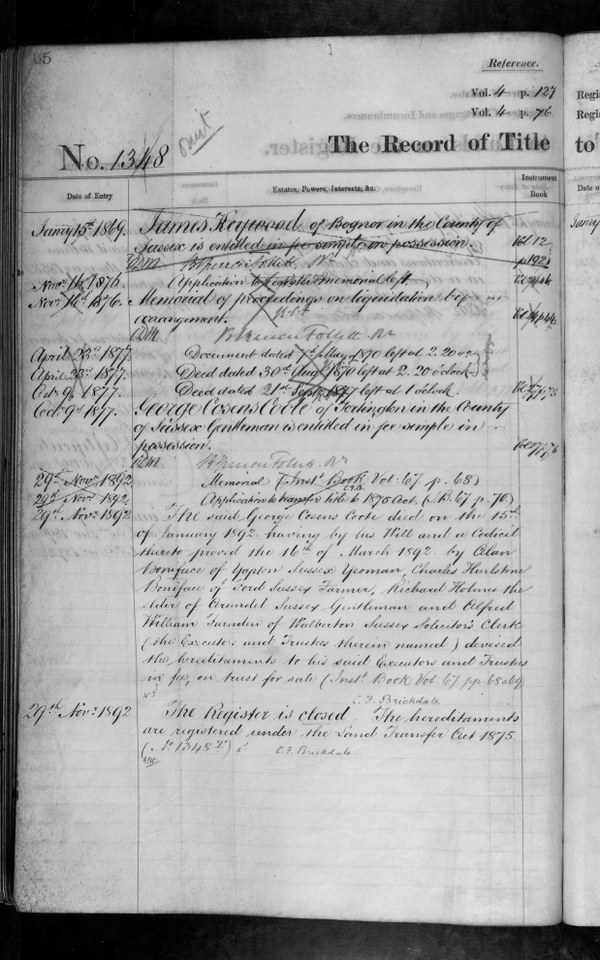 65
Reference.
Vol. 4 p. 127
Vol. 4 p. 76
The Record of Title
No. 1348
Date of Entry
Estates, Powers, Interests, &c.
Instrument Book
Jan'ry 15th 1869. James Heywood of Bognor in the County of
Sussex is entitled in fee simple in possession.
Brent Spencer Follett
Nov. 16th 1876. Application to memorial left
Nov. 16th 1876. Memorial of proceedings on liquidation by
arrangement.
April 23rd 1877. Document dated 7th May 1870 left at 2.20 o'c
April 23rd 1877. Deed dated 30th Aug. 1870 left at 2.20 o'clock
Oct. 9. 1877. Deed dated 21st Sept. 1877 left at 1 o'clock.
Oct. 9th 1877. George Cosens Coote of Tortington in the County
of Sussex Gentleman is entitled in fee simple in
possession.
29th Novr. 1892 Memorial (Inst. Book Vol. 67 p. 68)
29th Novr. 1892 Application to transfer title to 1875 Act. (I.B. 67 p. 70)
29th Novr. 1892 The said George Cosens Coote died on the 15th
of January 1892 having by his Will and a Codicil
thereto proved the 16th of March 1892 by Alan
Boniface of Yapton Sussex Yeoman, Charles Hurlstone
Boniface of Ford Sussex Farmer, Richard Holmes the
elder of Arundel Sussex Gentleman and Alfred
William of Walberton Sussex Solicitor's Clerk
(the Executors and Trustees therein named) devised
the hereditaments to his said Executors and Trustees
in fee, on trust for sale (Inst. Book Vol. 67 pp. 68 & 69
C. F. Brickdale
29th Novr. 1892 The Register is closed. The hereditaments
are registered under the Land Transfer Act 1875
(No. 1348) C. F. Brickdale
Regis
Regis
to
Date of
Jan'ry